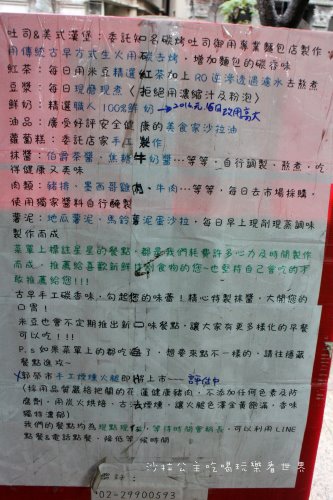 吐司&美式漢堡：委託知名碳烤吐司御用專業麵包店製作
用傳統古早方式生火用碳去烤，增加麵包的碳香味
紅茶：每日用米豆精選紅茶加上RO逆滲透過濾水去熬煮
豆漿：每日現磨現煮〈拒絕用濃縮汁及粉泡〉
鮮奶：精選職人100%鮮奶→2016元
油品：廣受好評安全健康的美食家沙拉油
蘿蔔糕：委託店家手工製作
抹醬：伯爵茶醬、焦糖牛奶醬…等等，自行調製、熬煮，吃
得健康又美味
肉類：豬排、墨西哥雞肉、牛肉…等等，每日去市場採購，
使用獨家醬料自行醃製
薯泥：地瓜薯泥、馬鈴薯泥蛋沙拉，每日早上現削現蒸調味
製作而成
菜單上標註星星的餐點，都是我們耗費許多心力及時間製作
而成，推薦給喜歡新鮮食物的您~也堅持自己會吃的不
敢推薦給您!!!
古早手工碳香味，勾起您的味蕾！精心特製抹醬，大開您的
口胃！
米豆也會不定期推出新口味餐點，讓大家有更多樣化的早餐
可以吃!!!
P.s如果菜單上的都吃過了，想要來點不一樣的，請往隱藏
餐點進攻~
郭爺市手工煙燻火腿即將上市——評估中
(採用品質嚴格把關的花蓮健康豬肉，不添加任何色素及防
腐劑，用炭火烘焙，古法煙燻，讓火腿色澤金黃飽滿，香味
獨特濃郁)
我們的餐點均為現點現做，等待時間會稍長，可以利用LINE
點餐&電話點餐，降低等候時間
02-29900593
沙拉公主吃喝玩樂看世界